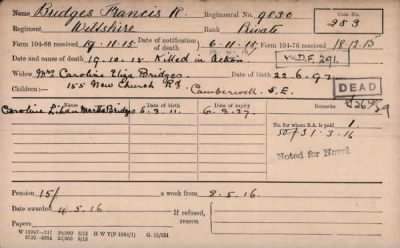 Name Budges Francis R. Regimental No. 9830 Case No. 253
Regiment, Wiltshire Rank Private
Form 104-88 received 19.11.15 Date of notification of death 6.11.15 Form 104-76 received 18.12.15
Date and cause of death 19.10.15 Killed in Action. W.D.F. 291.
Widow Mrs Caroline Eliza Bridges. Date of birth 22.6.97 DEAD
Children:— 155 New Church Rd, Camberwell S.E.
Date of birth Date of expiry Remarks
Caroline Lilian Bridges 6.3.11 6.3.27
No. for whom S.A. is paid 1.
31.3.16
Noted for Novel
Pension 15/ a week from 8.5.16.
Date awarded 4.5.16 If refused, reason
Papers